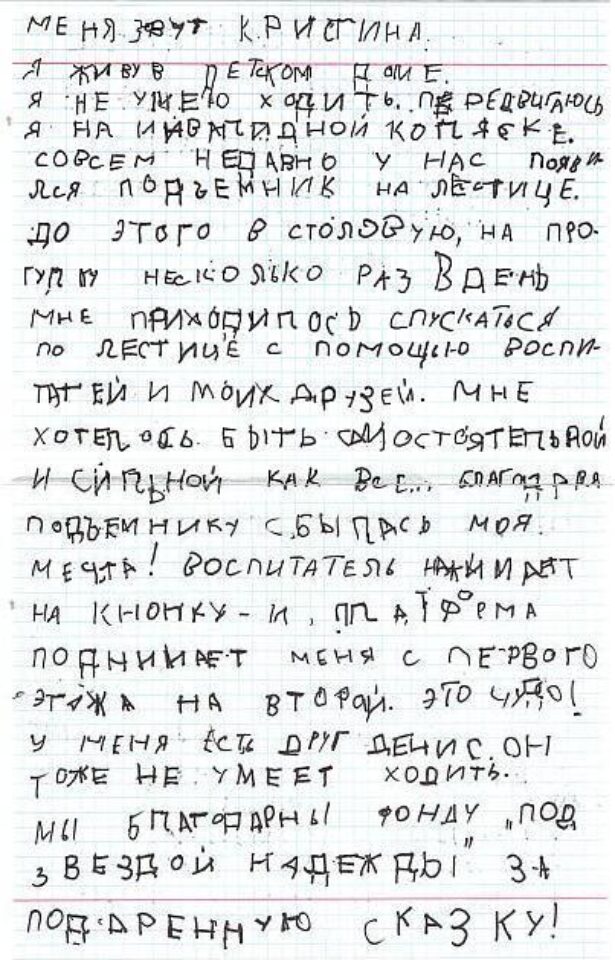 МЕНЯ ЗОВУТ КРИСТИНА.
Я ЖИВУ В ДЕТСКОМ ДОМЕ.
Я НЕ УМЕЮ ХОДИТЬ. ПЕРЕДВИГАЮСЬ
Я НА ИНВАЛИДНОЙ КОЛЯСКЕ.
СОВСЕМ НЕДАВНО У НАС ПОЯВИ-
ЛСЯ ПОДЪЕМНИК НА ЛЕСТИЦЕ.
ДО ЭТОГО В СТОЛОВУЮ, НА ПРО-
ГУЛКУ НЕСКОЛЬКО РАЗ В ДЕНЬ
МНЕ ПРИХОДИЛОСЬ СПУСКАТЬСЯ
ПО ЛЕСТИЦЕ С ПОМОЩЬЮ ВОСПИ-
ТАТЕЙ И МОИХ ДРУЗЕЙ. МНЕ
ХОТЕЛОСЬ БЫТЬ САМОСТОЯТЕЛЬНОЙ
И СИЛЬНОЙ КАК ВСЕ... БЛАГОДАРЯ
ПОДЪЕМНИКУ СБЫЛАСЬ МОЯ
МЕЧТА! ВОСПИТАТЕЛЬ НАЖИМАЕТ
НА КНОПКУ - И, ПЛАТФОРМА
ПОДНИМАЕТ МЕНЯ С ПЕРВОГО
ЭТАЖА НА ВТОРОЙ. ЭТО ЧУДО!
У МЕНЯ ЕСТЬ ДРУГ ДЕНИС. ОН
ТОЖЕ НЕ УМЕЕТ ХОДИТЬ.
МЫ БЛАГОДАРНЫ ФОНДУ „ПОД
ЗВЕЗДОЙ НАДЕЖДЫ" ЗА
ПОДАРЕННУЮ СКАЗКУ!